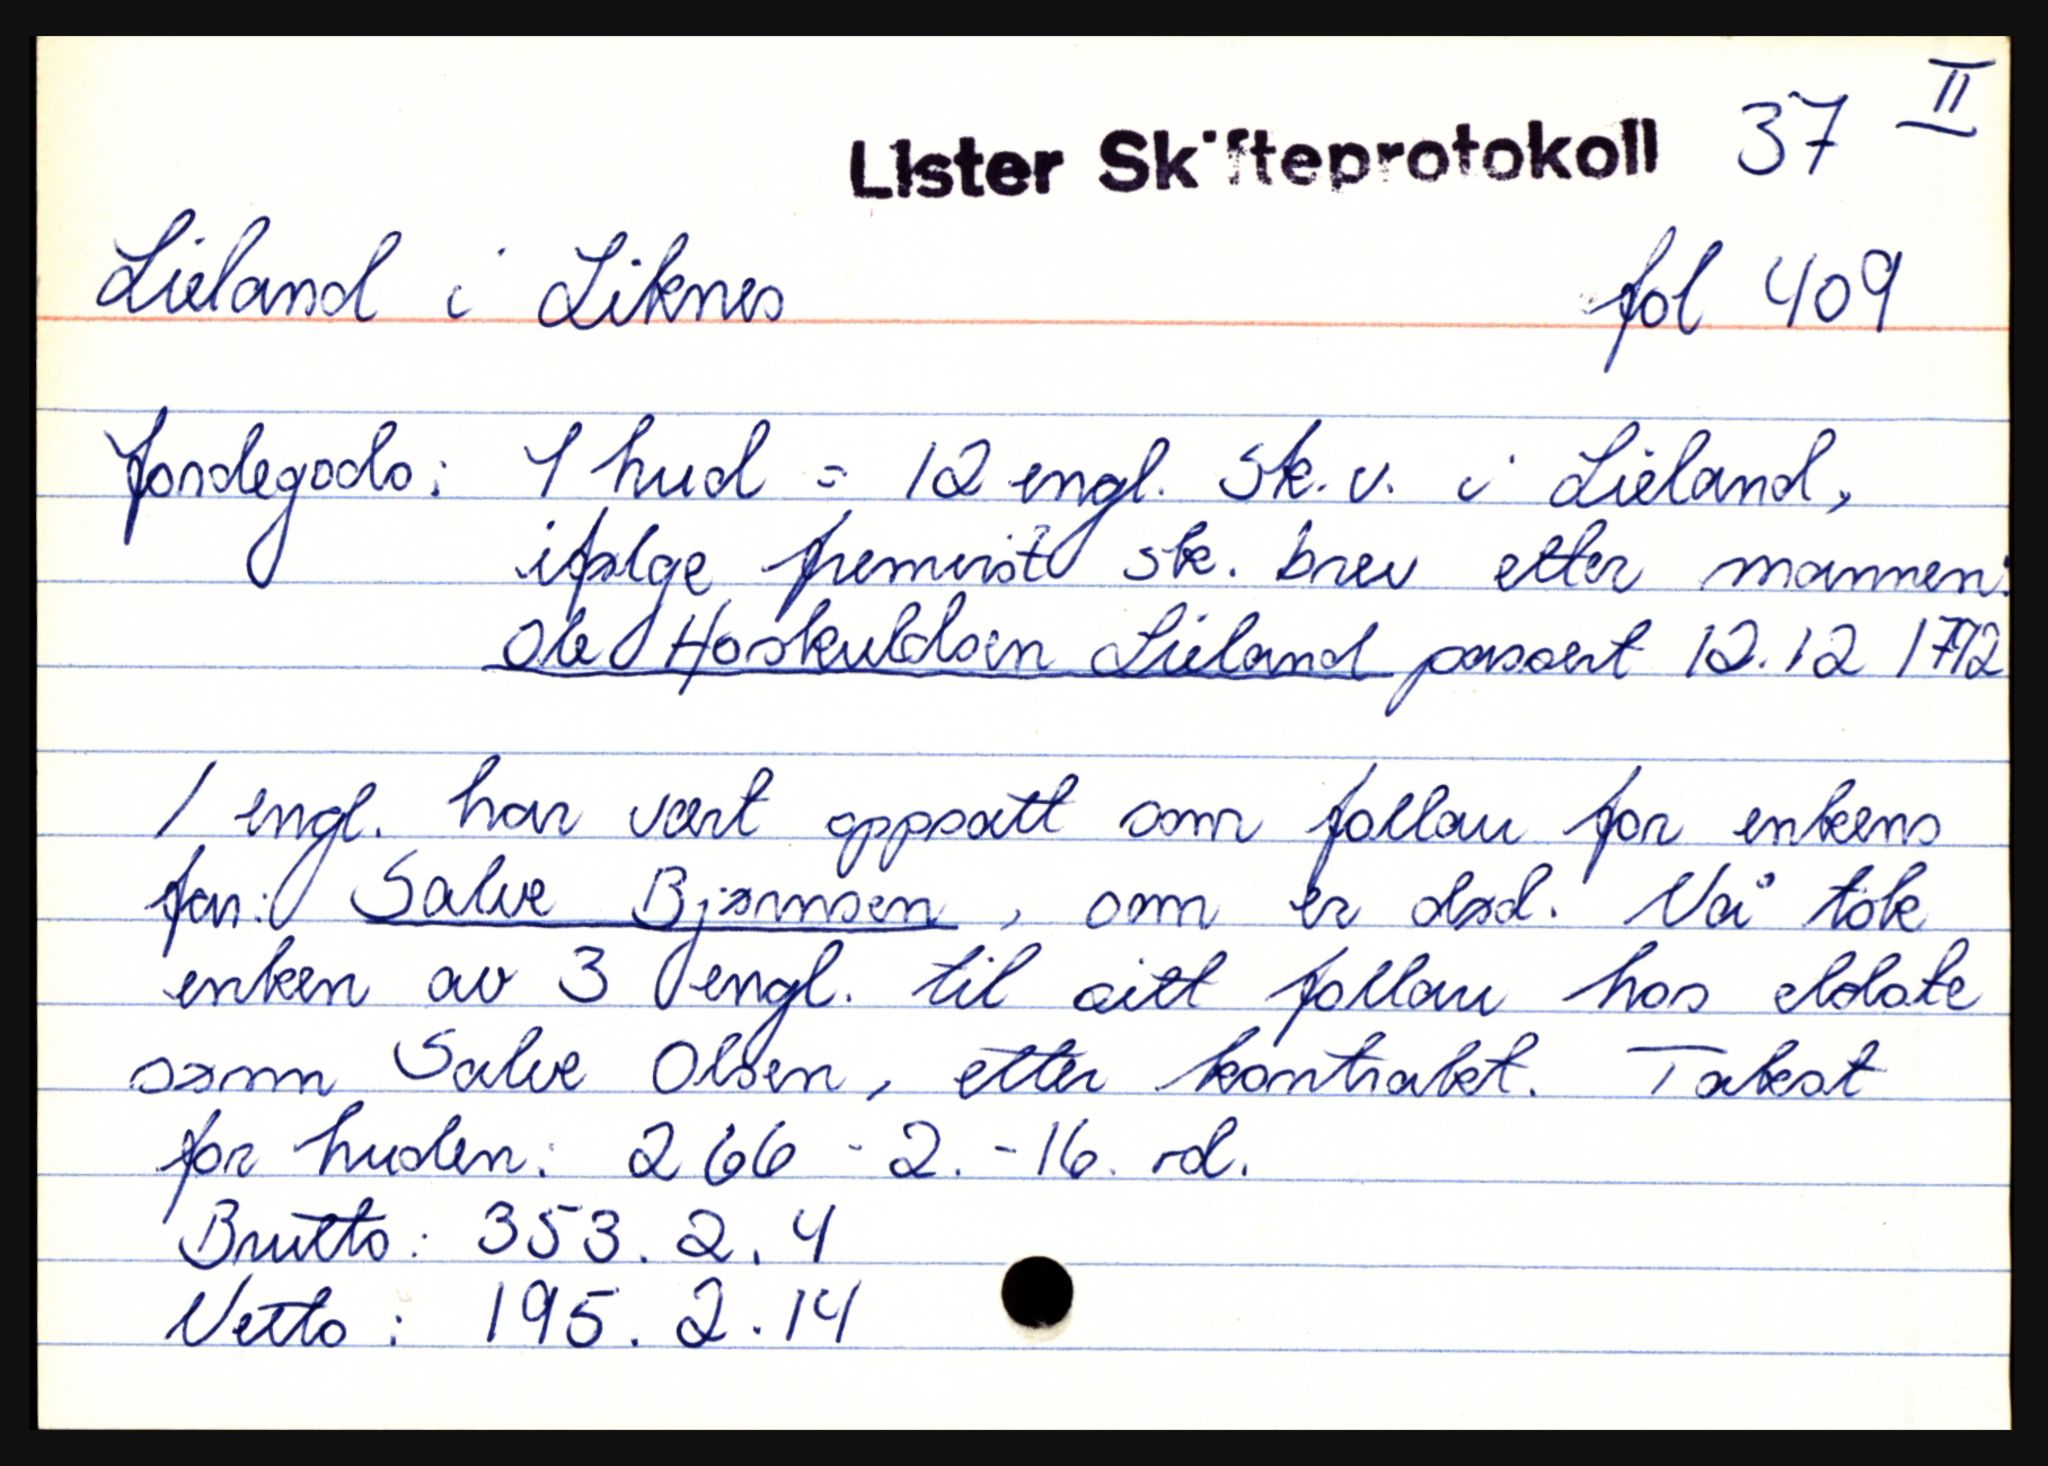 Lister Skifteprotokoll 37 II
Lieland i Liknes fol 409
Jordegods: 1 hud = 12 engl. sk. v. i Lieland,
ifølge fremvist sk. brev etter mannen:
Ole Hoskuldsen Lieland passert 12.12 1772
1 engl. har vært oppsatt som follau for enkens
far: Salve Bjørnsen, som er død. Nå tok
enken av 3 engl. til sitt follau hos eldste
sønn Salve Olsen, etter kontrakt. Takst
for huden: 266 - 2. - 16. rd.
Brutto: 353. 2. 4
Netto: 195. 2. 14